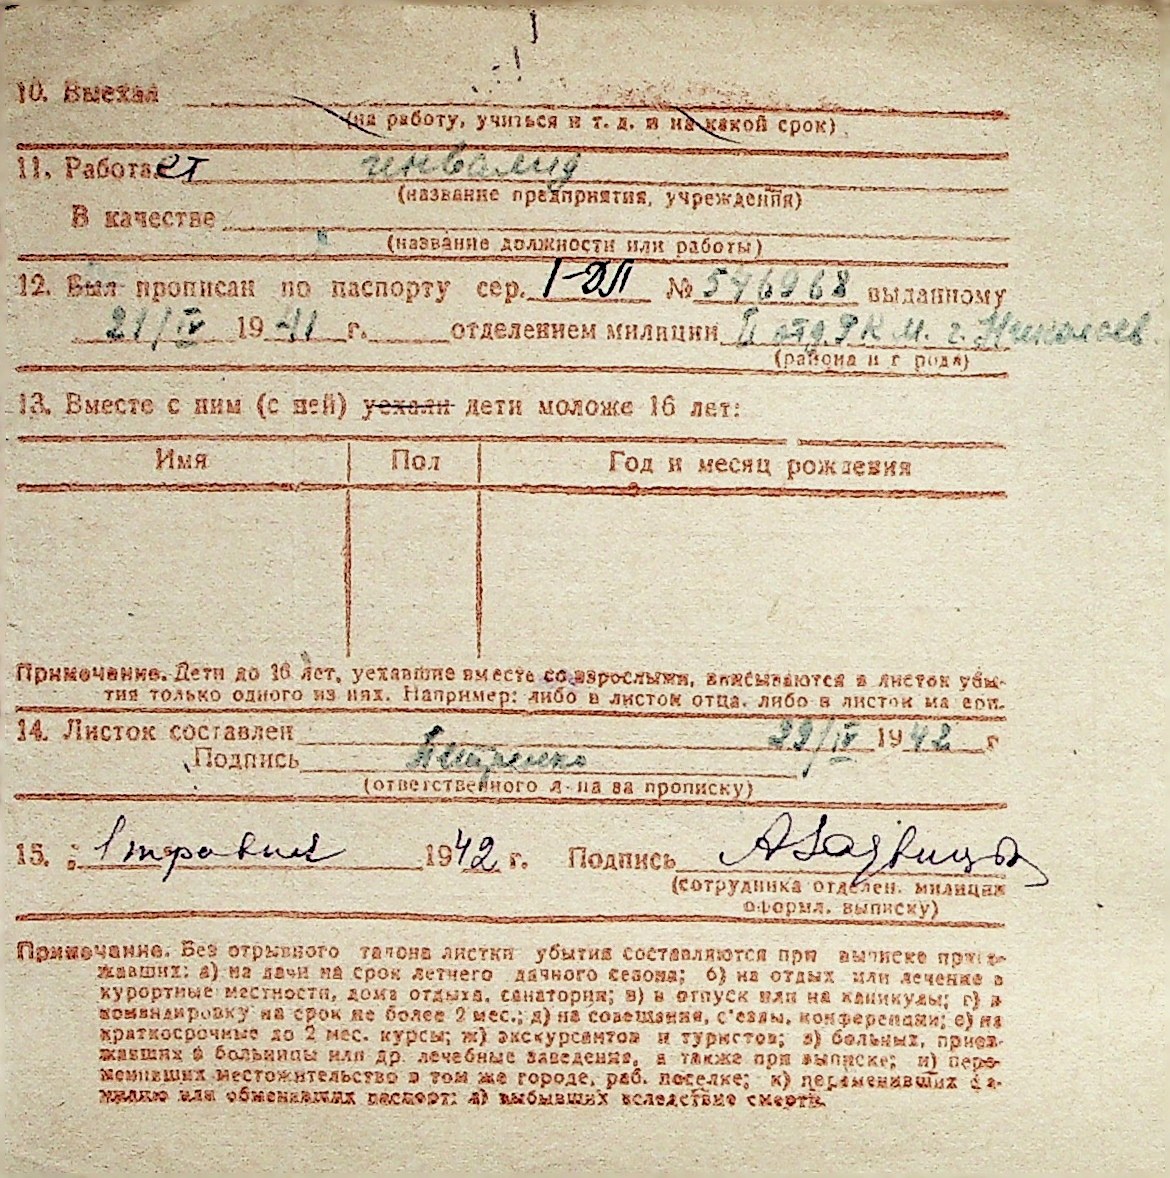 10. Выехал
(на работу, учиться и т. д. и на какой срок)
11. Работает инвалид
(название предприятия, учреждения)
В качестве
(название должности или работы)
12. Был прописан по паспорту сер. I-ДЛ № 546968 выданному
21/IV 1941 г. отделением милиции II отд. РКМ. г. Николаев.
(района и города)
13. Вместе с ним (с ней) уехали дети моложе 16 лет:
Имя Пол Год и месяц рождения
Примечание. Дети до 16 лет, уехавшие вместе со взрослыми, вписываются в листок убы-
тия только одного из них. Например: либо в листок отца, либо в листок матери.
14. Листок составлен 29/IV 1942 г
Подпись Петренко
(ответственного л-ца за прописку)
15. 1 мая 1942 г. Подпись
(сотрудника отделен. милиции
оформл. выписку)
Примечание. Без отрывного талона листки убытия составляются при выписке приез-
жавших: а) на дачи на срок летнего дачного сезона; б) на отдых или лечение в
курортные местности, дома отдыха, санатории; в) в отпуск или на каникулы; г) в
командировку на срок не более 2 мес.; д) на совещания, с'езды, конференции; е) на
краткосрочные до 2 мес. курсы; ж) экскурсантов и туристов; з) больных, приез-
жавших в больницы или др. лечебные заведения, а также при выписке; и) пере-
менивших местожительство в том же городе, раб. поселке; к) переменивших фа-
милию или обменявших паспорт; л) выбывших вследствие смерти.